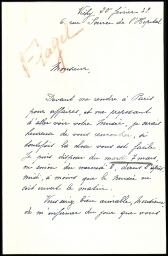 Vichy, 20 février 39
6 rue Source de l'Hôpital
Monsieur,
Devant me rendre à Paris
pour affaires, et me proposant
d'aller voir votre musée, je serais
heureux de vous rencontrer, si
toutefois la chose vous est possible.
Je puis disposer du mardi 7 mars,
ou sinon du mercredi 8, dans l'après
midi, à moins que le musée ne
soit ouvert le matin.
Vous seriez bien aimable, Monsieur,
de m'informer du jour que vous